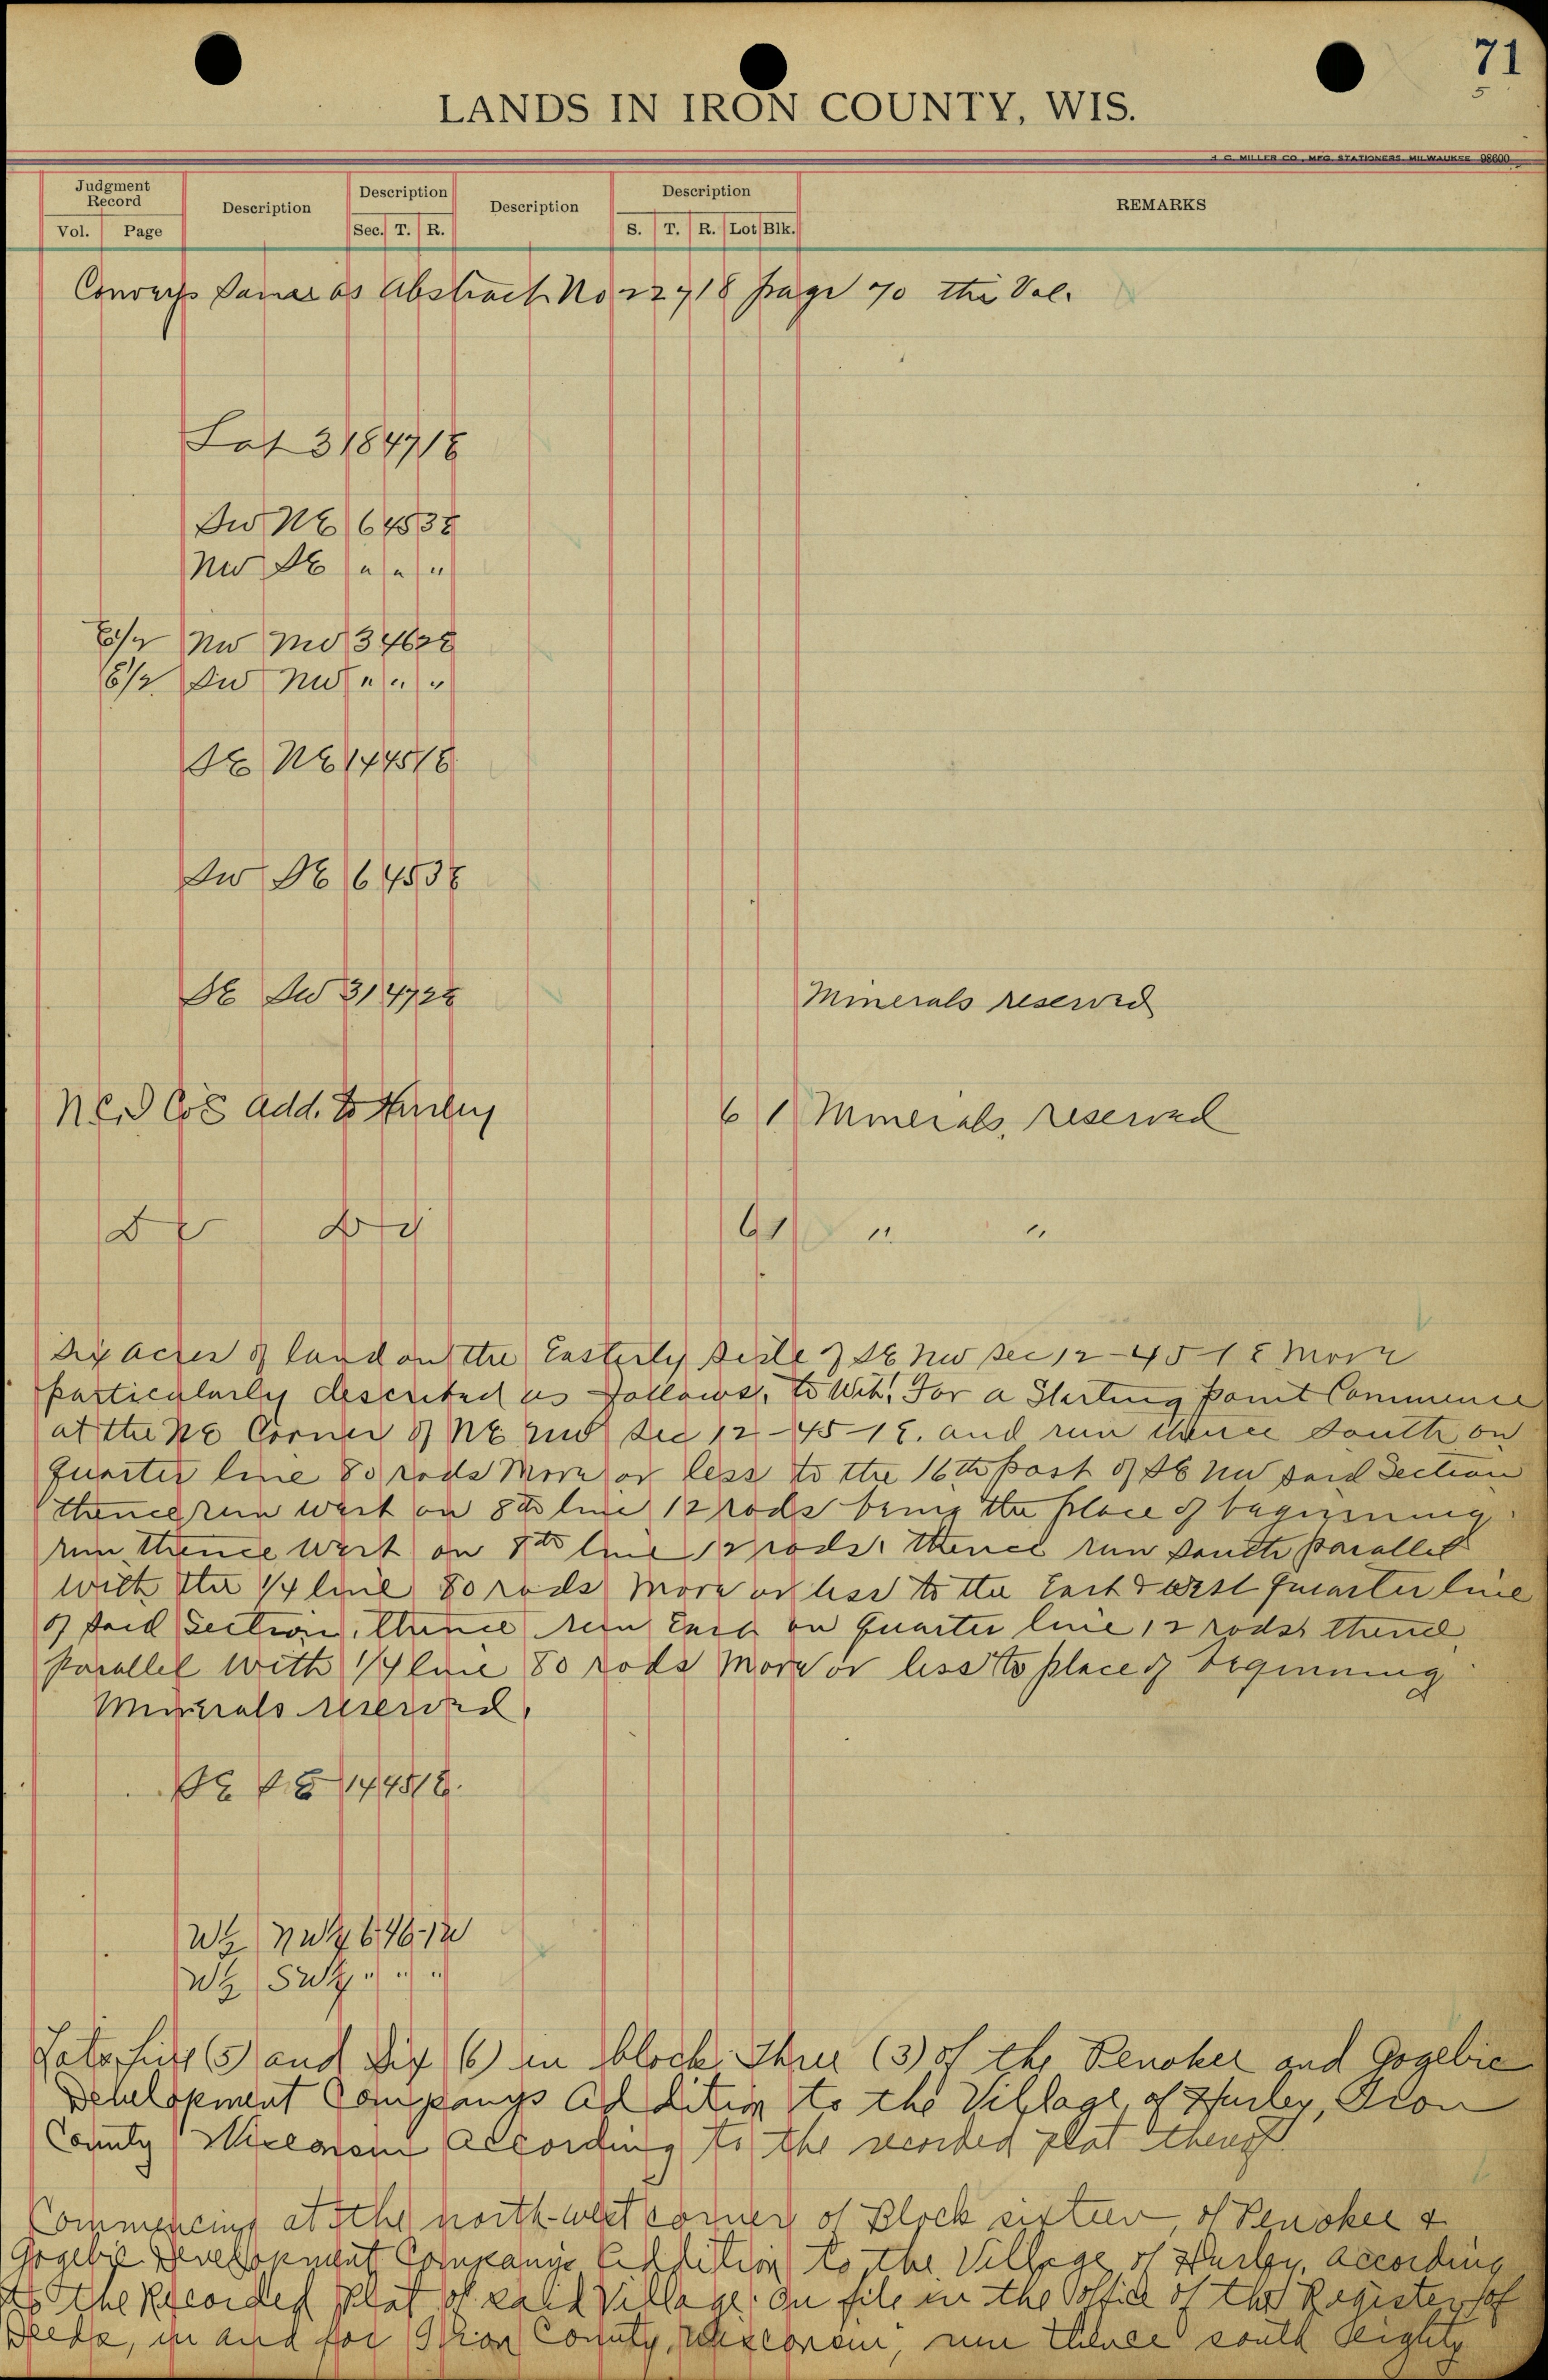 71
5
LANDS IN IRON COUNTY, WIS.
H. C. MILLER CO., MFG. STATIONERS, MILWAUKEE 98600
Judgment Record Description Description Description Description REMARKS
Vol. Page Sec. T. R. S. T. R. Lot Blk.
Conveys Same as Abstract No 22718 page 70 this Vol.
Lot 3 18 47 1E
SW NE 6 45 3E
NW SE " " "
E 1/2 NW NW 34 46 2E
E 1/2 SW NW " " "
SE NE 14 45 1E
SW SE 6 45 3E
SE SW 31 47 2E Minerals reserved
N & G D Co's Add. to Hurley 6 1 Minerals reserved
Do Do 6 1 " "
Six acres of land on the Easterly side of SE NW Sec 12-45-1E more
particularly described as follows, to Wit: For a Starting point Commence
at the NE Corner of NE NW Sec 12-45-1E. and run thence South on
quarter line 80 rods more or less to the 16th post of SE NW said Section
thence run West on 8th line 12 rods being the place of beginning.
run thence West on 8th line 12 rods. thence run south parallel
with the 1/4 line 80 rods more or less to the East & West quarter line
of said Section, thence run East on quarter line 12 rods thence
parallel with 1/4 line 80 rods more or less to place of beginning
Minerals reserved.
SE SE 14 45 1E.
W 1/2 NW 1/4 6 46-1W
W 1/2 SW 1/4 " " "
Lots five (5) and Six (6) in block Three (3) of the Penokee and Gogebic
Development Companys Addition to the Village of Hurley, Iron
County Wisconsin according to the recorded plat thereof
Commencing at the north-west corner of Block sixteen, of Penokee &
Gogebic Development Companys Addition to the Village of Hurley, according
to the Recorded Plat of said Village, on file in the office of the Register of
Deeds, in and for Iron County, Wisconsin, run thence south eighty